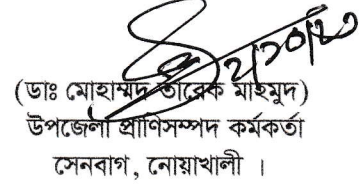 (ডাঃ মোহাম্মদ তারেক মাহমুদ)
উপজেলা প্রাণিসম্পদ কর্মকর্তা
সেনবাগ, নোয়াখালী ।